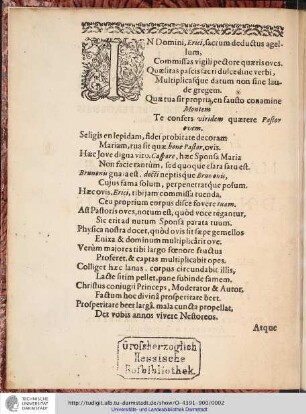 IN Domini, Erici, sacrum deductus agel-
lum,
Commissas vigili pectore quæris oves.
Quæsitas pascis sacri dulcedine verbi,
Multiplicasque datum non sine lau-
de gregem.
Quæ tua sit propria, en fausto conamine
Montem
Te confers viridem quærere Pastor
ovem.
Seligis en lepidam, fidei probitate decoram
Mariam, tua sit quæ bone Pastor, ovis.
Hæc Jove digna viro, Caspare, hæc Sponsa Maria
Non facie tantùm, sed quoque clara satu est.
Brunonis gnata est. docti neptisque Brunonis,
Cujus fama solum, perpenetratque polum.
Hæc ovis, Erici, tibi jam commissa tuenda,
Ceu proprium corpus disce fovere tuum.
Ast Pastoris oves, notum est, quòd voce regantur,
Sic erit ad nutum Sponsa parata tuum.
Physica nostra docet, quòd ovis sit sæpe gemellos
Enixa & dominum multiplicârit ove.
Verùm majores tibi largo fœnore fructus
Proferet, & captas multiplicabit opes.
Colliget hæc lanas, corpus circundabit illis,
Lacte sitim pellet, pane subinde famem.
Christus conjugii Princeps, Moderator & Autor,
Factum hoc divinâ prosperitate beet.
Prosperitate beet largâ, mala cuncta propellat,
Det vobis annos vivere Nestoreos.
Atque
Großherzoglich
Hessische
Hofbibliothek
TECHNISCHE
UNIVERSITÄT
DARMSTADT
http://tudigit.ulb.tu-darmstadt.de/show/O-3391-900/0002
Universitäts- und Landesbibliothek Darmstadt